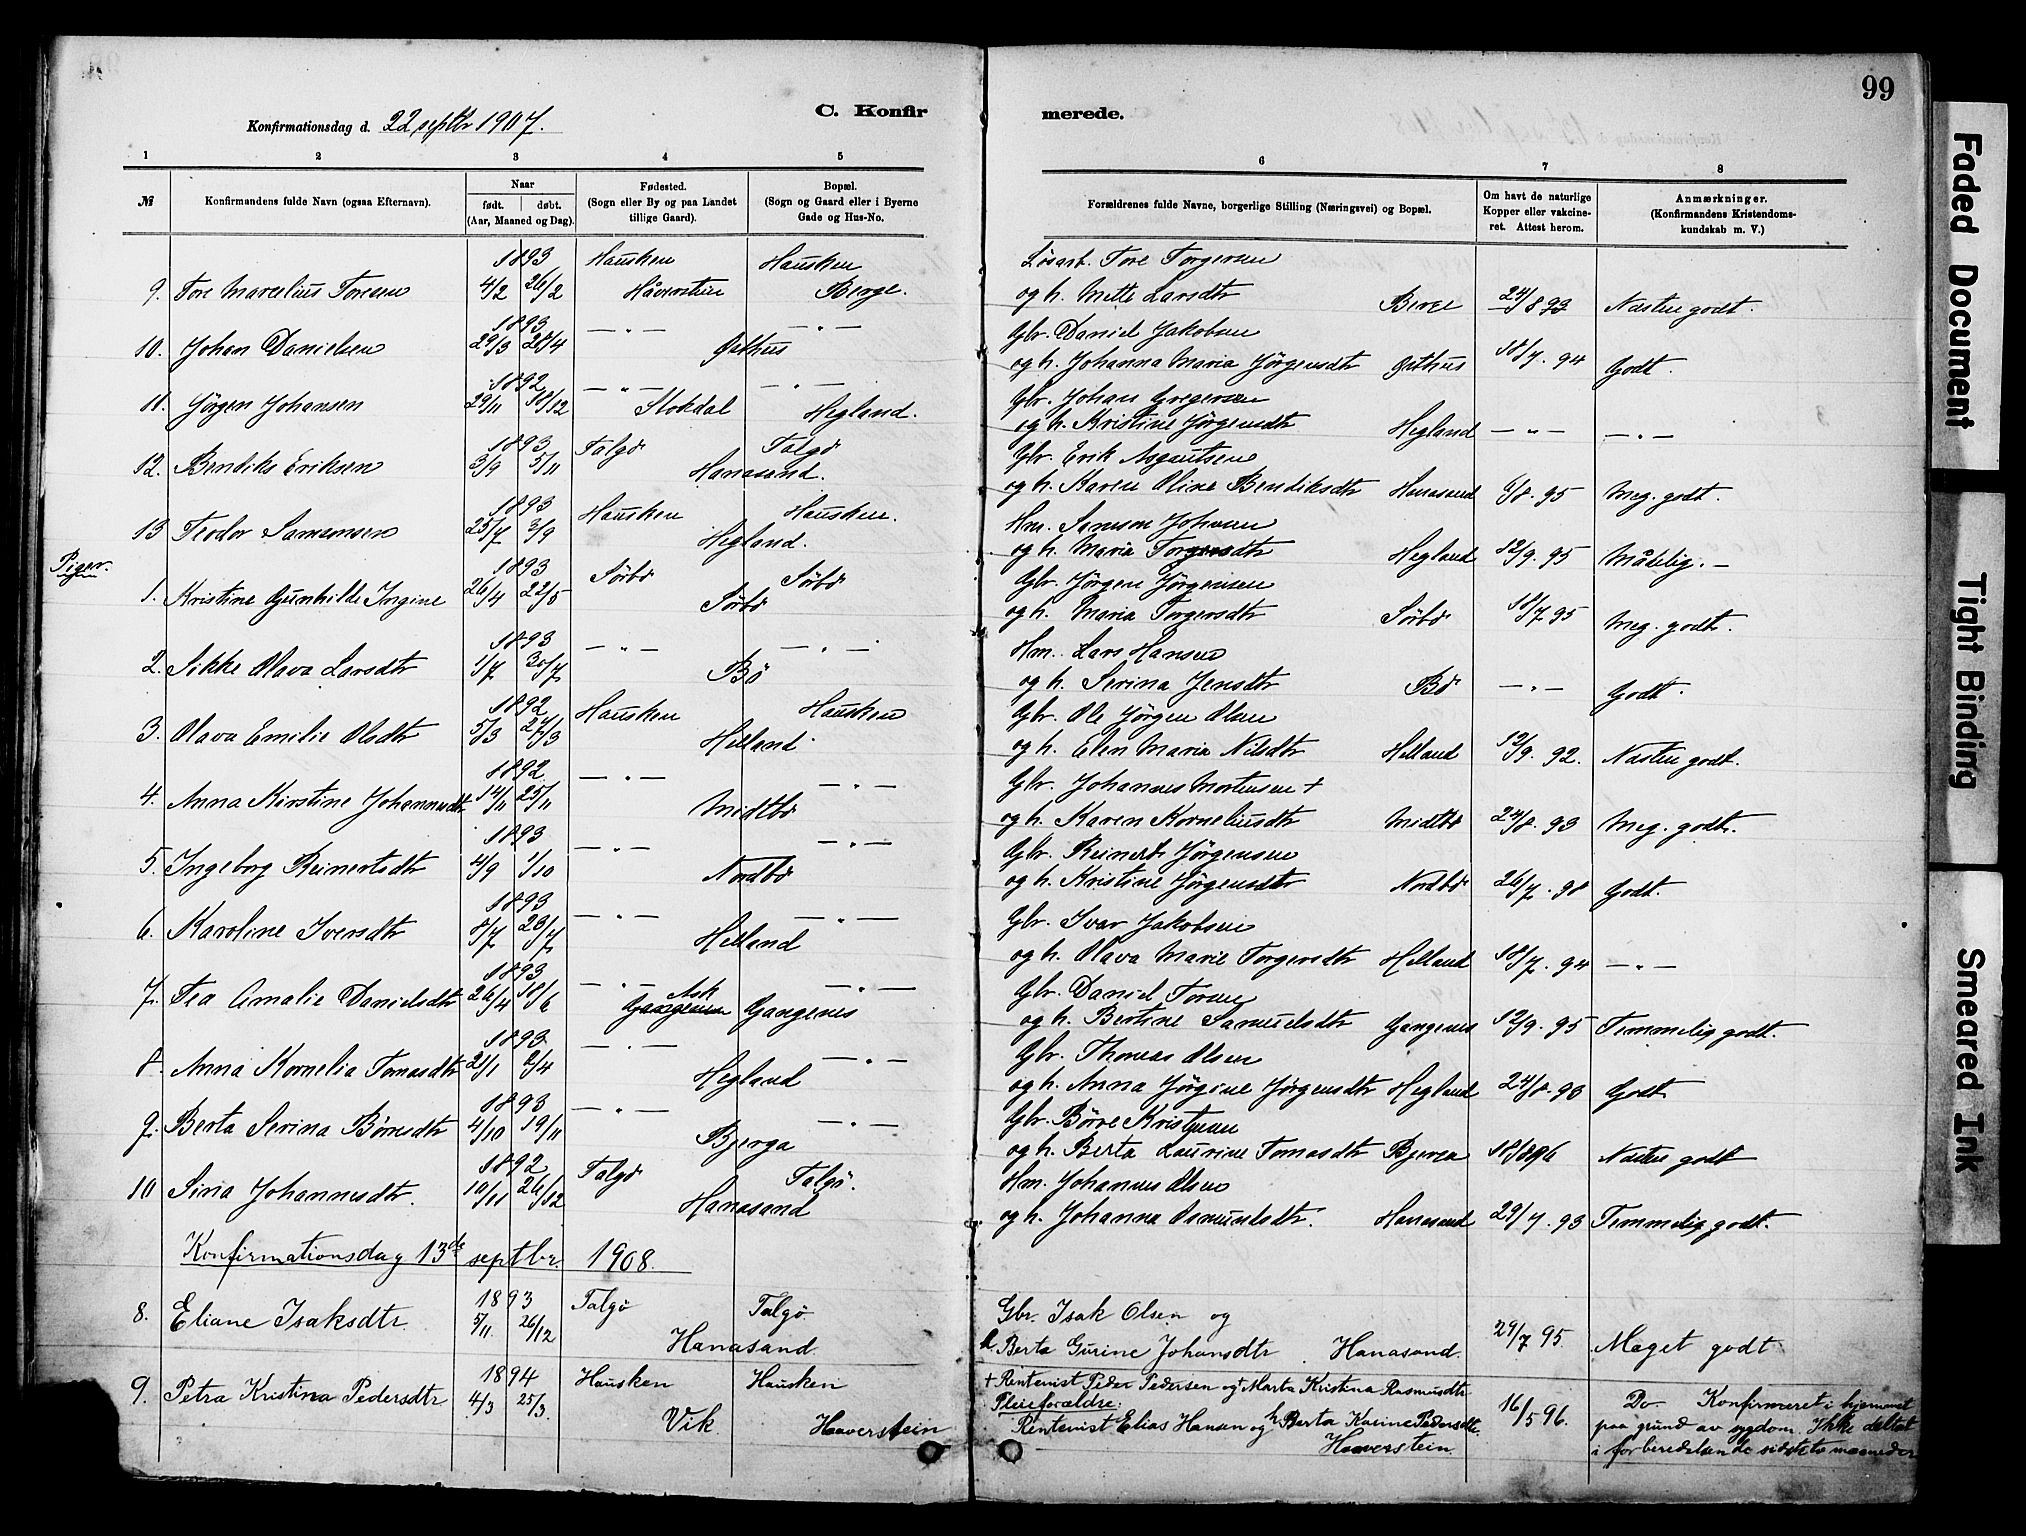 99
C. Konfirmerede.
Konfirmationsdag d. 22 septbr 1907.
1 2 3 4 5 6 7 8
№ Konfirmandens fulde Navn (ogsaa Efternavn). Naar født. døbt. (Aar, Maaned og Dag). Fødested. (Sogn eller By og paa Landet tillige Gaard). Bopæl. (Sogn og Gaard eller i Byerne Gade og Hus-No. Forældrenes fulde Navne, borgerlige Stilling (Næringsvei) og Bopæl. Om havt de naturlige Kopper eller vakcineret. Attest herom. Anmærkninger. (Konfirmandens Kristendomskundskab m. V.)
1893 Hausken Hausken Løsarb. Tore Torgersen
9. Tore Marselius Toresen 4/2 26/2 Håverstein Berge. og h. Mette Larsdtr Berge 24/8 93 Næsten godt.
1893 — " — — " — Gbr. Daniel Jakobsen
10. Johan Danielsen 29/3 24/4 Østhus og h. Johanna Maria Jørgensdtr Østhus 18/7. 94 Godt.
1892 — " — — " — Gbr. Johan Gregersen
11. Jørgen Johansen 29/11 18/12 Stokdal Hegland. og h. Kristine Jørgensdtr Hegland — " — — " —
1893 Talgø Talgø Gbr. Erik Asgautsen
12. Bendiks Eriksen 3/9 5/11 Hanasand. og h. Karen Oline Bendiksdtr Hanasand 6/8. 95 Meg. godt.
1893 Hausken Hausken. Hm. Samson Johnsen
13 Teodor Samsonsen 25/7 3/9 Hegland. og h. Maria Torgersdtr Hegland 12/9. 95 Mådelig. –
Piger.
1893 Sörbö Sörbö Gbr. Jörgen Jörgensen
1. Kristine Gunhilde Ingine 26/4 22/5 Sörbö og h. Maria Torgersdtr Sörbö 18/7 95 Meg. godt.
1893 — " — — " — Hm. Lars Hansen
2. Sikke Olava Larsdtr 1/7 30/7 Bö og h. Serina Jensdtr Bö — " — Godt.
1892 Hausken Hausken Gbr. Ole Jörgen Olsen
3. Olava Emilie Olsdtr 5/3 27/3 Helland og h. Elen Maria Nilsdtr Helland 12/9. 92. Næsten godt.
1892 — " — — " — Gbr. Johannes Mortensen +
4. Anna Kirstine Johannesdtr 14/11 25/11 Midtbö og h. Karen Korneliusdtr Midtbö 24/8. 93 Meg. godt.
1893 — " — — " — Gbr. Reinert Jörgensen
5. Ingeborg Reinertsdtr 4/9 1/10 Nordbö og h. Kristine Jörgensdtr Nordbö 26/7. 98 Godt.
1893 — " — — " — Gbr. Ivar Jakobsen
6. Karoline Iversdtr 4/7 23/7 Helland og h. Olava Marie Torgersdtr Helland 18/7. 94 — " —
1893 — " — — " — Gbr. Daniel Toresen
7. Tea Amalie Danielsdtr 26/4 18/6 Ask Gangenes og h. Bertine Samuelsdtr Gangenes 12/9. 95 Temmelig godt.
1893 — " — — " — Gbr. Thomas Olsen
8. Anna Kornelia Tomasdtr 21/1 2/4 Hegland og h. Anna Jörgine Jörgensdtr Hegland 24/8. 93 Godt
1893 — " — — " — Gbr. Börre Kristensen
9. Berta Serina Börresdtr 4/10 19/11 Bjerga og h. Berta Laurine Tomasdtr Bjerga 18/8 96 Næsten godt
1892 Talgö Talgö. Hm. Johannes Olsen
10 Sina Johannesdtr. 10/11 26/12 Hanasand og h. Johanna Osmundsdtr. Hanasand 29/7. 93 Temmelig godt.
Konfirmationsdag 13de septbr. 1908.
1893 Talgö Talgö. Gbr. Isak Olsen og
8. Eliane Isaksdtr. 5/11. 26/12 Hanasand. h Berta Gurine Johansdtr. Hanasand. 29/7 95. Meget godt
1894 Hausken Hausken + Rentenist Peder Pedersen og + Marta Kristina Rasmusdtr
9. Petra Kristina Pedersdtr 4/3 25/3. Vik. Haaverstein Pleieforældre: Rentenist Elias Hansen og h Berta Karine Pedersdtr. Haaverstein 16/5 96. Do. Konfirmeret i hjemmet
paa grund av sygdom. Ikke deltat
i forberedelsen de sidste maaneder
Faded Document
Tight Binding
Smeared Ink